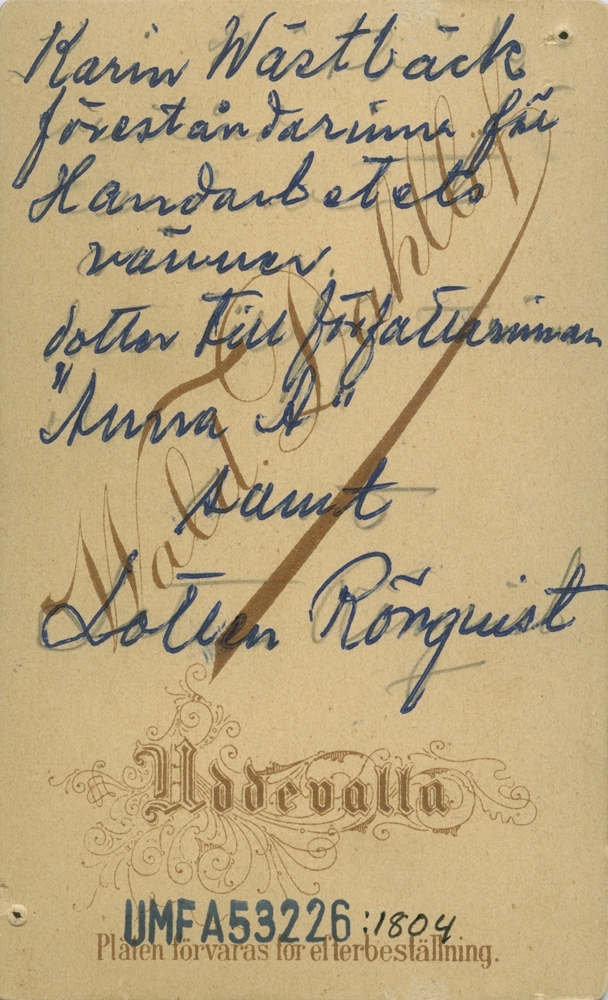 Karin Wästbäck
föreståndarinna för
Handarbetets
vänner
dotter till författarinnan
"Anna A"
samt
Lotten Rönquist
Wald. Dahllöf
Uddevalla
UMFA53226:1804
Plåten förvaras för efterbeställning.